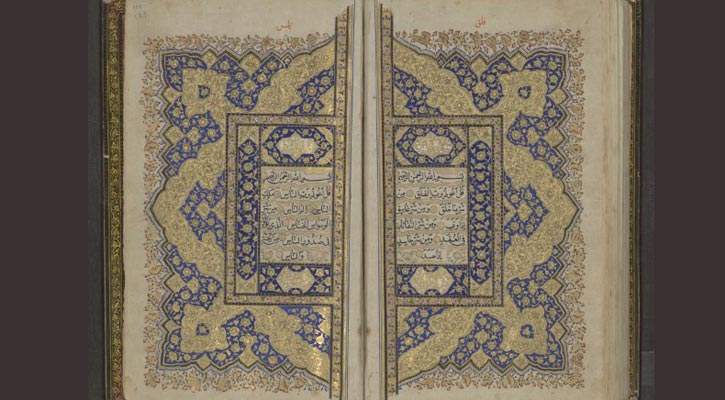 فلق
بسم الله الرحمن الرحيم
قل اعوذ برب الفلق من
شر ما خلق ومن شر غاسق
اذا وقب ومن شر النفاثات
في العقد ومن شر حاسد
اذا حسد
ناس
بسم الله الرحمن الرحيم
قل اعوذ برب الناس ملك
الناس اله الناس من شر
الوسواس الخناس الذي يوسوس
في صدور الناس من الجنة
والناس